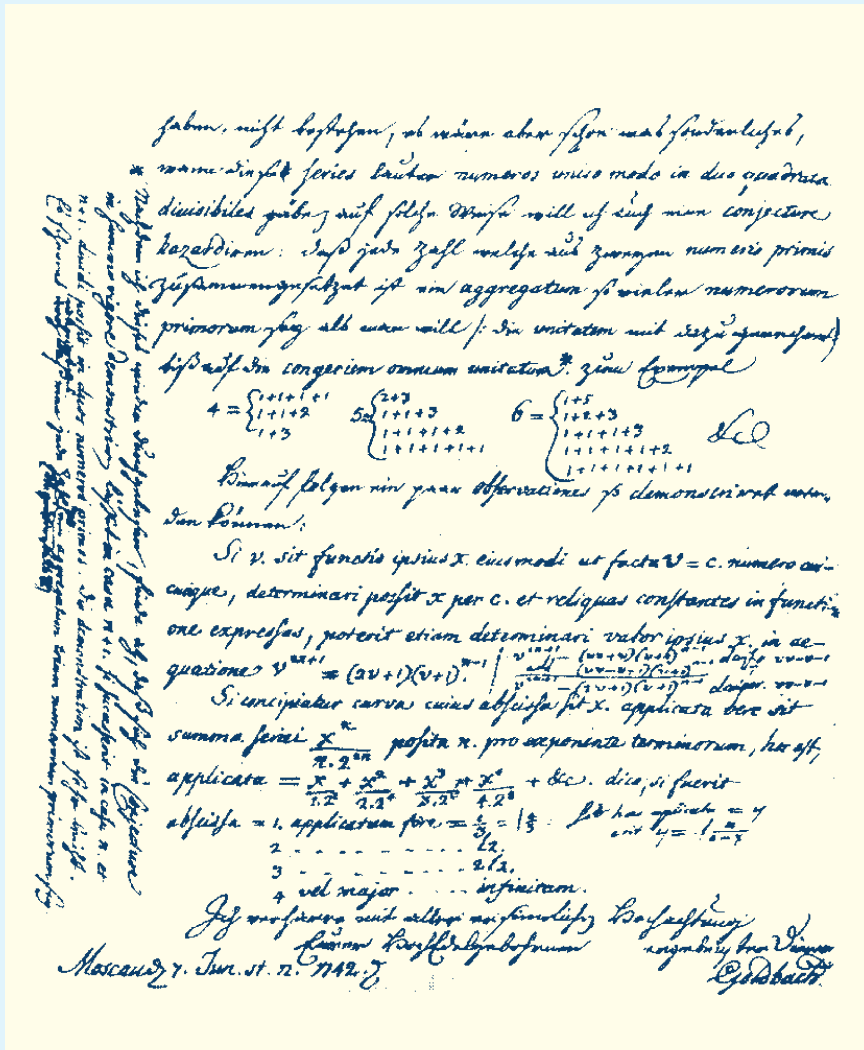 haben, nicht bestehen, es wäre aber schon was sonderliches,
wann diese series lauter numeros unico modo in duo quadrata
divisibiles gäbe; auf solche Weise will ich auch eine conjecture
hazardiren: daß jede Zahl welche aus zweyen numeris primis
zusammengesetzet ist ein aggregatum so vieler numerorum
primorum sey als man will /: die unitatem mit dazu gerechnet :/
biß auf die congeriem omnium unitatum*. zum Exempel
4 = { 1+1+1+1 / 1+1+2 / 1+3   5 = { 2+3 / 1+1+3 / 1+1+1+2 / 1+1+1+1+1   6 = { 1+5 / 1+2+3 / 1+1+1+3 / 1+1+1+1+2 / 1+1+1+1+1+1   &c
Hierauf folgen ein paar observationes so demonstriret wer-
den können:
Si v. sit functio ipsius x. eiusmodi ut facta v = c. numero cui-
cunque, determinari possit x per c. et reliquas constantes in functi-
one expressas, poterit etiam determinari valor ipsius x. in ae-
quatione v^{2n+1} = (2v+1)(v+1)^{n-1}
Si concipiatur curva cuius abscissa sit x. applicata vero sit
summa seriei x^n / n.2^{2n} posita n. pro exponente terminorum, hoc est,
applicata = x/1.2^2 + x^2/2.2^4 + x^3/3.2^6 + x^4/4.2^8 + &c. dico, si fuerit
abscissa = 1. applicatam fore = l 4/3
2 . . . . . . . . . l2.
3 . . . . . . . . . 2l2.
4 vel major . . . . infinitam.
Ich verharre mit aller ersinnlichen Hochachtung
Eurer HochEdelgebohrnen ergebenster Diener
Moscau d. 7. Jun. st. n. 1742. Goldbach.
* Nachdem ich dieses wieder durchgelesen, finde ich, daß sich die conjecture
in summo rigore demonstriren lässet in casu n+1. si successerit in casu n. et
n+1. dividi possit in duos numeros primos. Die demonstration ist sehr leicht.
Es scheinet daß eine jede Zahl ein aggregatum trium numerorum primorum sey.